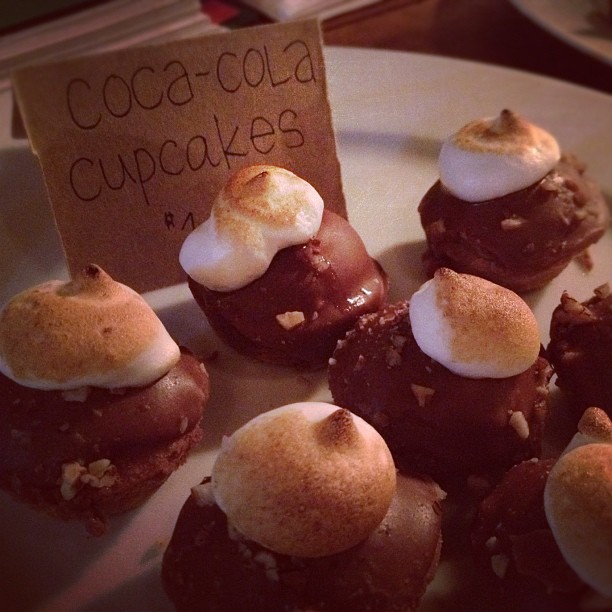 COCA-COLA
cupcakes